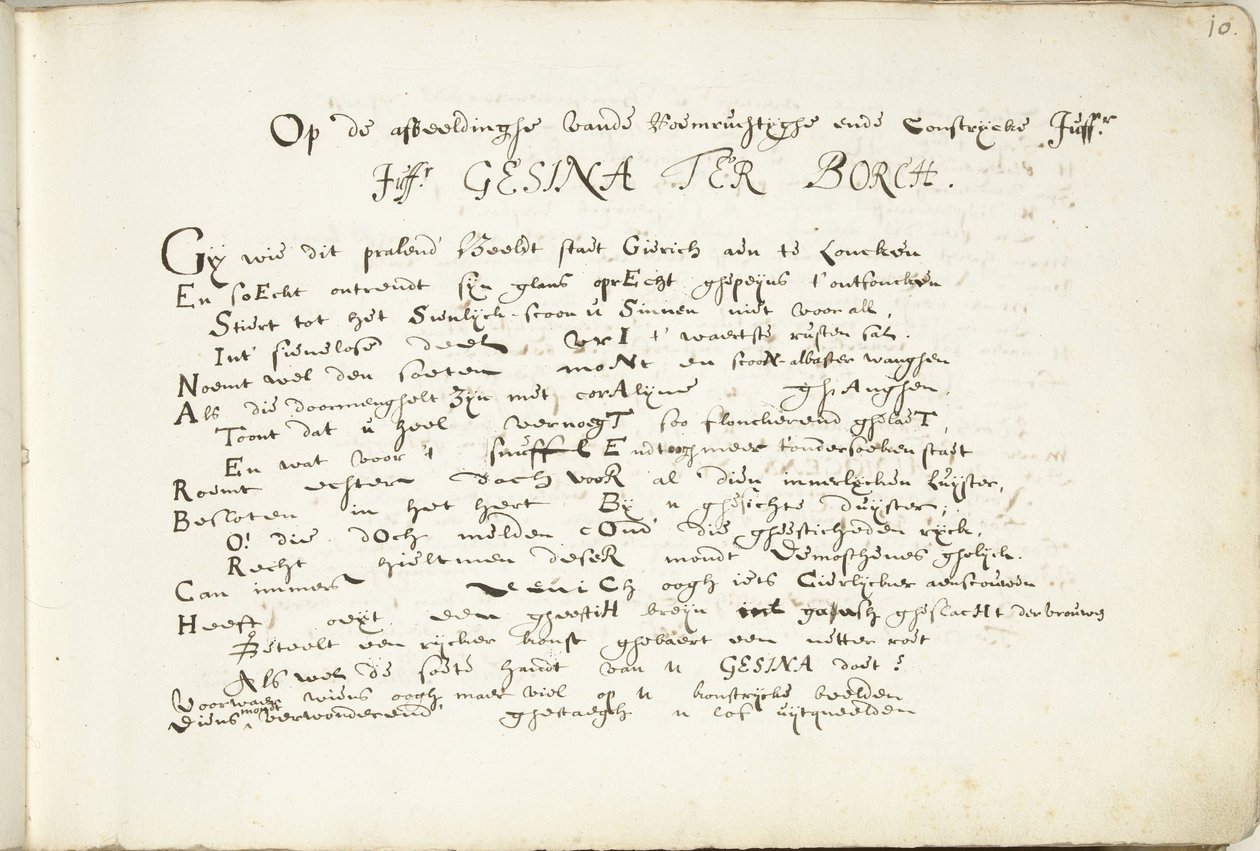 10.
Op de afbeeldinghe vande Roemruchtyghe ende Constrycke Juffr
Juffr GESINA TER BORCH.
Gy wie dit pralend Beeldt staet Gierich aen te Loncken
En soEckt ontrendt syn glans oprEcht ghepeyns t'ontfoncken
Stiert tot het Sienlyck-scoon u Sinnen niet voor all,
Int' sienelose deel vrI t' waertste rusten sal.
Noemt wel den soeten moNt en scooN-albaster wanghen
Als die doormenghelt Zyn met corAlyne ghehAnghen,
Toont dat u heel vernoegT soo flonckerend ghelaeT,
En wat voor 't snuffeL Endt oogh meer t'ondersoeken staet
Roemt echter doch vooR al dien innerlycken Luyster,
Besloten in het hert By u ghesichte duyster;
O! die dOch melden cOnd' die gheesticheden ryck,
Recht hieltmen deseR mondt Demosthenes ghelyck.
Can immers eeniCh oogh iets Cierlycker aenscouwen
Heeft oeyt een gheestiH breyn ghslacHt der vrouwen
Beteelt een rycker konst ghebaert een netter voet
Als wel de soete handt van u GESINA doet?
Voorwaer wiens oogh maer viel op u konstrycke beelden
Diens mondt verwonderend' ghestaegh u lof uytqueelden